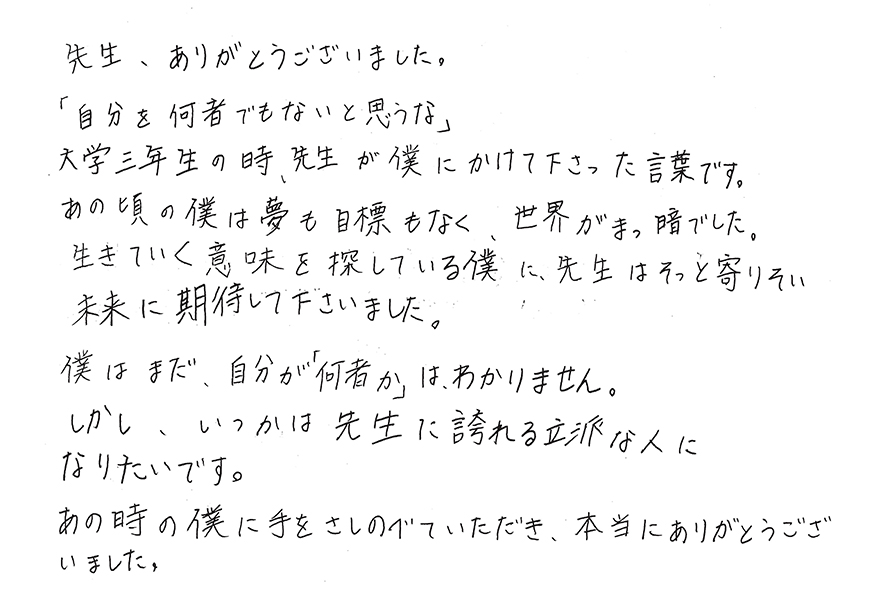 先生、ありがとうございました。
「自分を何者でもないと思うな」
大学三年生の時、先生が僕にかけて下さった言葉です。
あの頃の僕は夢も目標もなく、世界がまっ暗でした。
生きていく意味を探している僕に、先生はそっと寄りそい
未来に期待して下さいました。
僕はまだ、自分が「何者か」は、わかりません。
しかし、いつかは先生に誇れる立派な人に
なりたいです。
あの時の僕に手をさしのべていただき、本当にありがとうござ
いました。